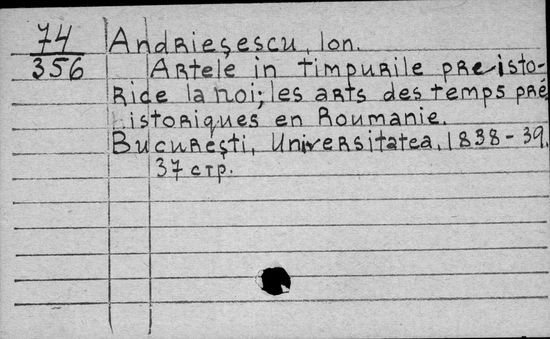 74
356
Andrieşescu, Ion.
Artele in timpurile preisto-
ride la noi; les arts des temps pré
historiques en Roumanie.
Bucureşti, Universitatea, 1838-39.
37 стр.